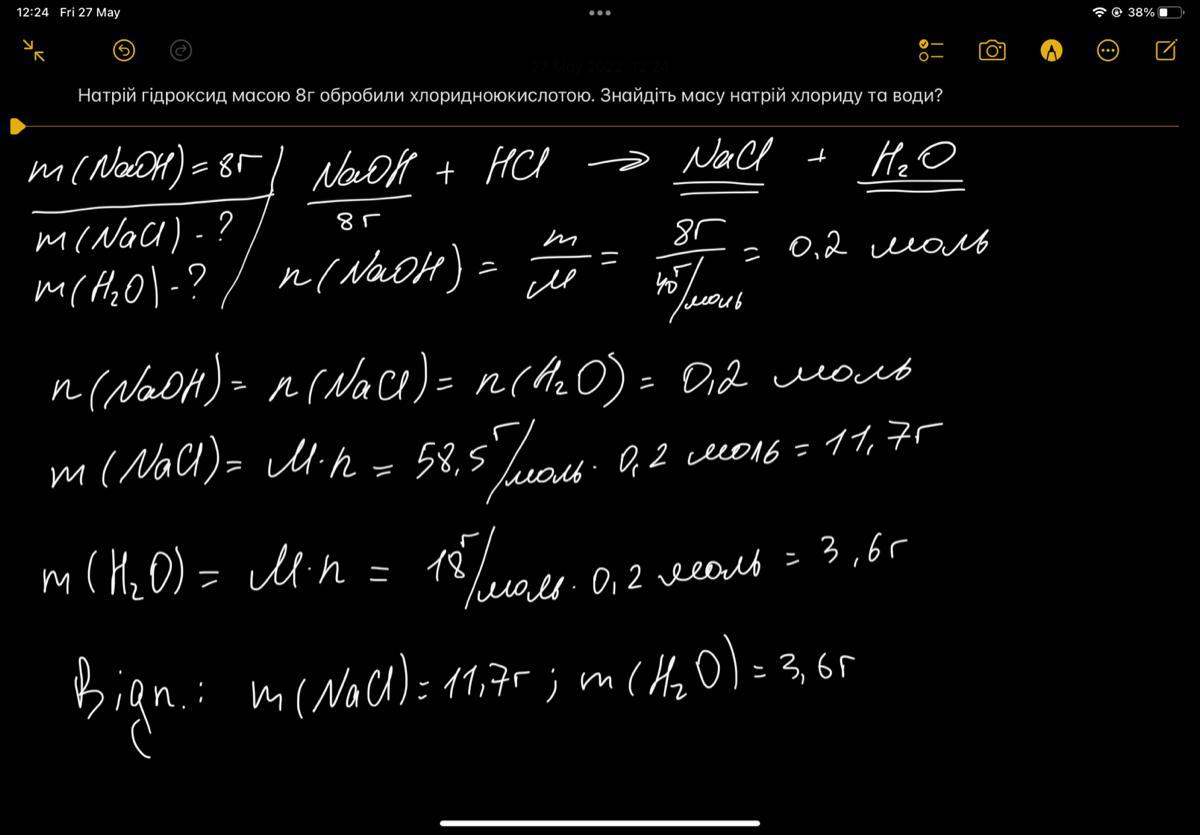 12:24 Fri 27 May 38%
27 May 2022, 12:24
Натрій гідроксид масою 8г обробили хлоридноюкислотою. Знайдіть масу натрій хлориду та води?
m(NaOH)=8г NaOH + HCl → NaCl + H₂O
8г
m(NaCl)-?
m(H₂O)-?
n(NaOH) = m/M = 8г/40г/моль = 0,2 моль
n(NaOH)= n(NaCl)= n(H₂O)= 0,2 моль
m(NaCl)= M·n = 58,5г/моль· 0,2 моль = 11,7г
m(H₂O)= M·n = 18г/моль· 0,2 моль = 3,6г
Відп.: m(NaCl)=11,7г; m(H₂O)=3,6г